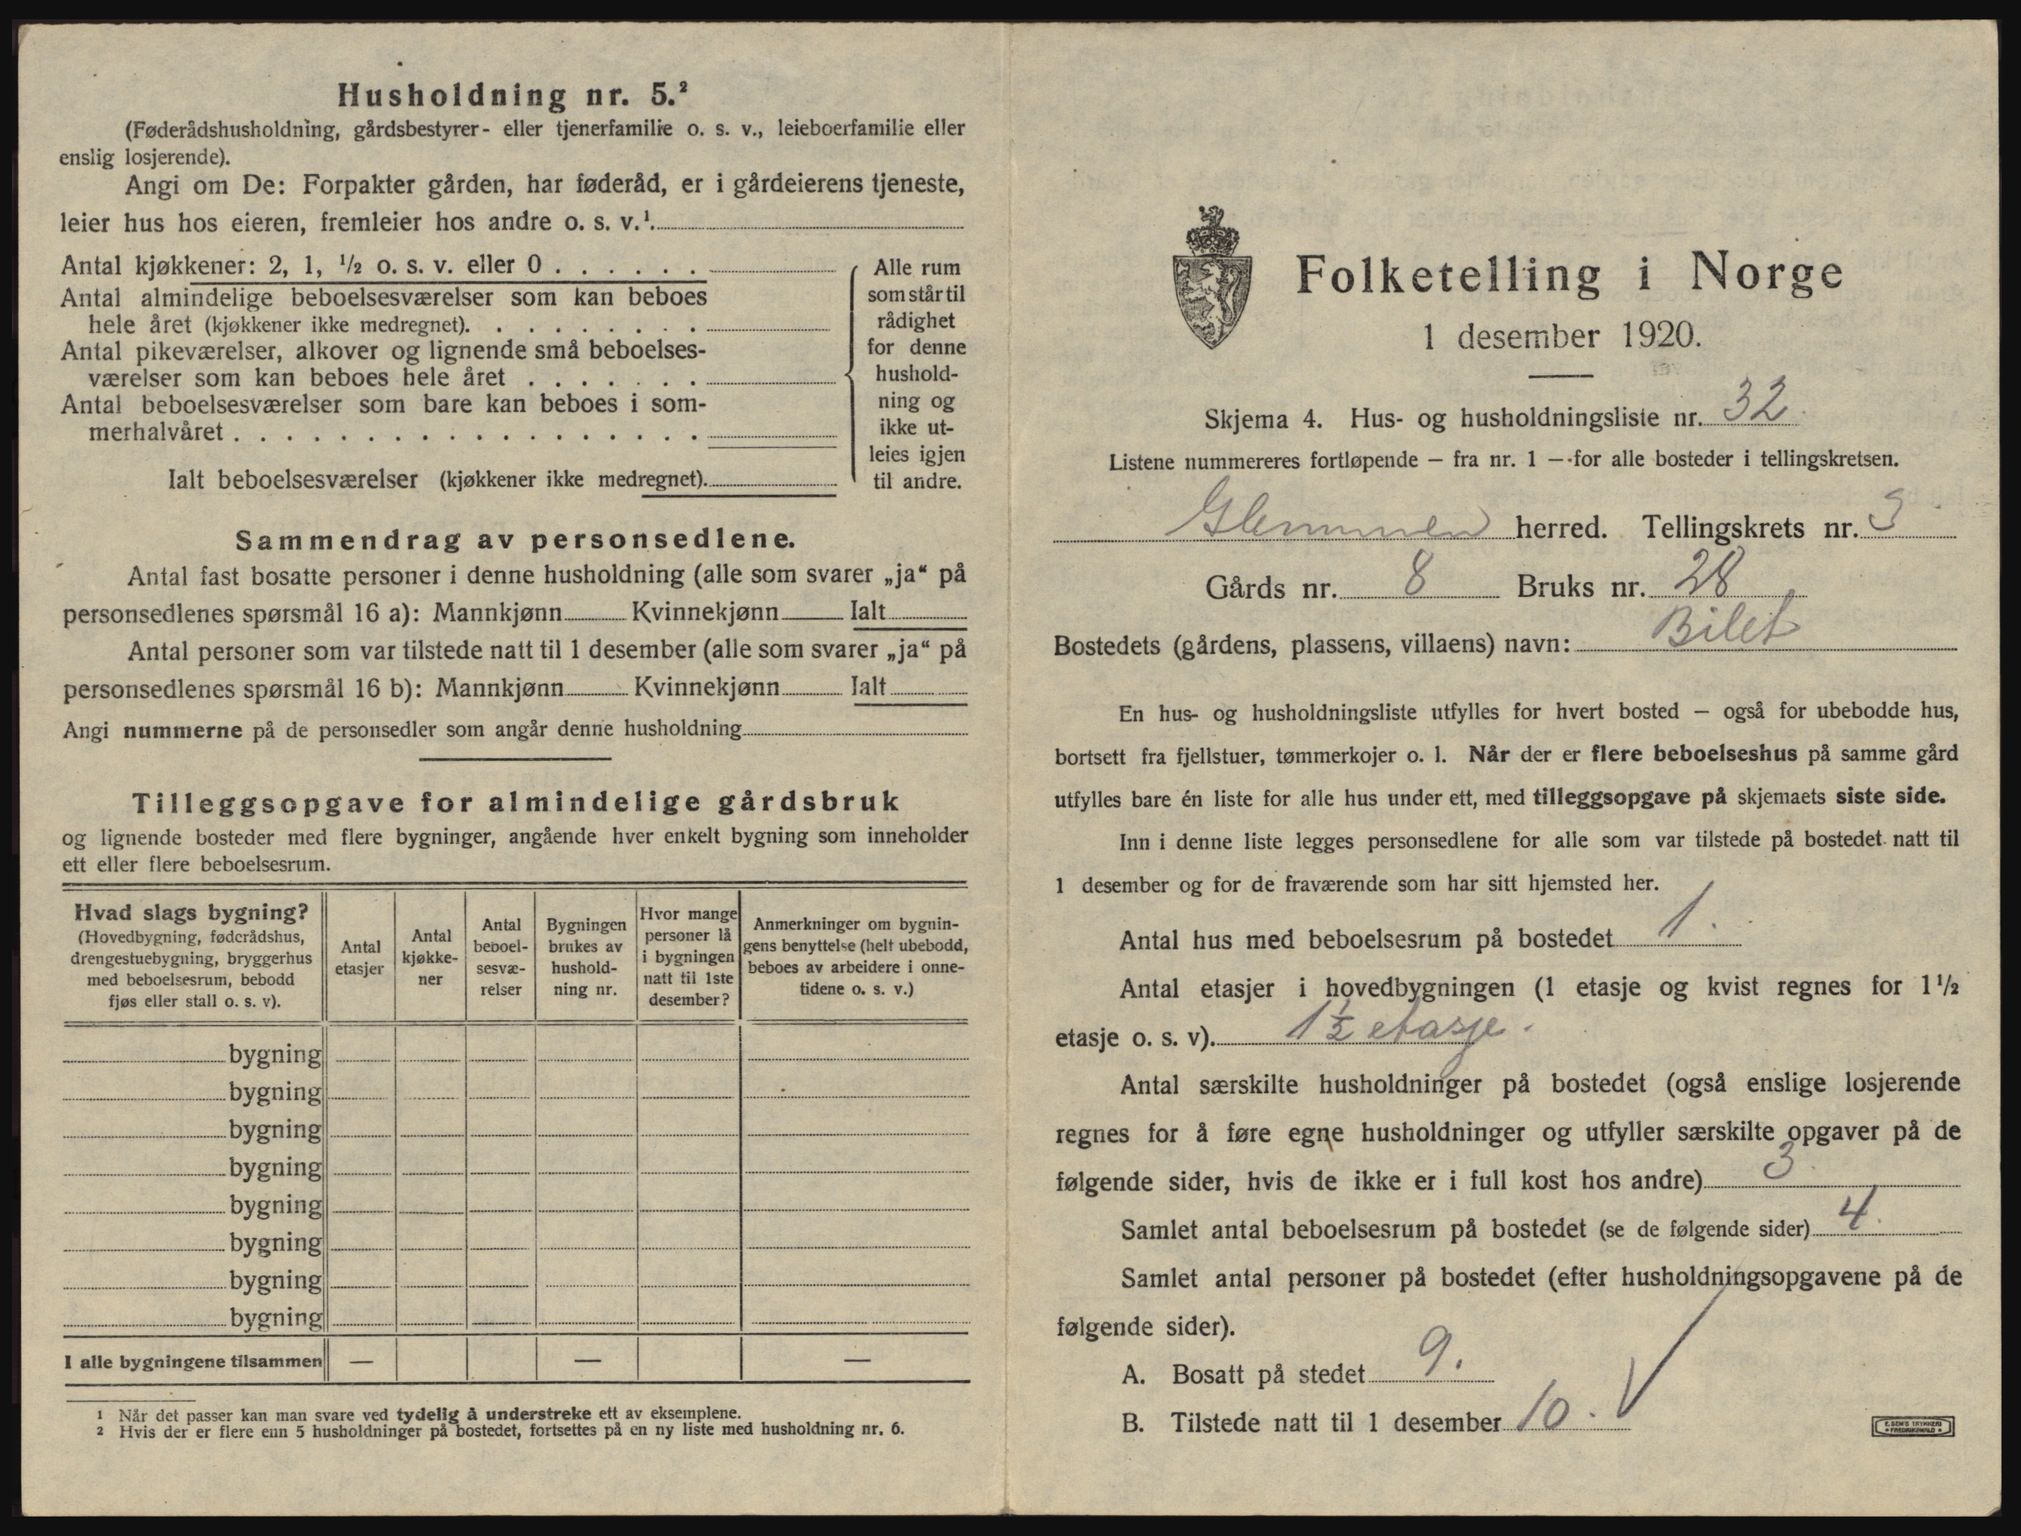 Husholdning nr. 5.²
(Føderådshusholdning, gårdsbestyrer- eller tjenerfamilie o. s. v., leieboerfamilie eller
enslig losjerende).
Angi om De: Forpakter gården, har føderåd, er i gårdeierens tjeneste,
leier hus hos eieren, fremleier hos andre o. s. v.¹
Antal kjøkkener: 2, 1, ½ o. s. v. eller 0 . . . . . .
Antal almindelige beboelsesværelser som kan beboes
hele året (kjøkkener ikke medregnet). . . . . . . . .
Antal pikeværelser, alkover og lignende små beboelses-
værelser som kan beboes hele året . . . . . . .
Antal beboelsesværelser som bare kan beboes i som-
merhalvåret . . . . . . . . . . . . . . . . . .
Ialt beboelsesværelser (kjøkkener ikke medregnet).
Alle rum
som står til
rådighet
for denne
hushold-
ning og
ikke ut-
leies igjen
til andre.
Sammendrag av personsedlene.
Antal fast bosatte personer i denne husholdning (alle som svarer „ja“ på
personsedlenes spørsmål 16 a): Mannkjønn Kvinnekjønn Ialt
Antal personer som var tilstede natt til 1 desember (alle som svarer „ja“ på
personsedlenes spørsmål 16 b): Mannkjønn Kvinnekjønn Ialt
Angi nummerne på de personsedler som angår denne husholdning
Tilleggsopgave for almindelige gårdsbruk
og lignende bosteder med flere bygninger, angående hver enkelt bygning som inneholder
ett eller flere beboelsesrum.
Hvad slags bygning?
(Hovedbygning, føderådshus,
drengestuebygning, bryggerhus
med beboelsesrum, bebodd
fjøs eller stall o. s. v).
Antal
etasjer
Antal
kjøkke-
ner
Antal
beboel-
sesvæ-
relser
Bygningen
brukes av
hushold-
ning nr.
Hvor mange
personer lå
i bygningen
natt til 1ste
desember?
Anmerkninger om bygnin-
gens benyttelse (helt ubebodd,
beboes av arbeidere i onne-
tidene o. s. v.)
bygning
bygning
bygning
bygning
bygning
bygning
bygning
bygning
I alle bygningene tilsammen — — —
¹ Når det passer kan man svare ved tydelig å understreke ett av eksemplene.
² Hvis der er flere enn 5 husholdninger på bostedet, fortsettes på en ny liste med husholdning nr. 6.
Folketelling i Norge
1 desember 1920.
Skjema 4. Hus- og husholdningsliste nr. 32.
Listene nummereres fortløpende — fra nr. 1 — for alle bosteder i tellingskretsen.
Glemmen herred. Tellingskrets nr. 3.
Gårds nr. 8 Bruks nr. 28
Bostedets (gårdens, plassens, villaens) navn: Bilet
En hus- og husholdningsliste utfylles for hvert bosted — også for ubebodde hus,
bortsett fra fjellstuer, tømmerkojer o. l. Når der er flere beboelseshus på samme gård
utfylles bare én liste for alle hus under ett, med tilleggsopgave på skjemaets siste side.
Inn i denne liste legges personsedlene for alle som var tilstede på bostedet natt til
1 desember og for de fraværende som har sitt hjemsted her.
Antal hus med beboelsesrum på bostedet 1.
Antal etasjer i hovedbygningen (1 etasje og kvist regnes for 1½
etasje o. s. v). 1½ etasje.
Antal særskilte husholdninger på bostedet (også enslige losjerende
regnes for å føre egne husholdninger og utfyller særskilte opgaver på de
følgende sider, hvis de ikke er i full kost hos andre) 3.
Samlet antal beboelsesrum på bostedet (se de følgende sider) 4.
Samlet antal personer på bostedet (efter husholdningsopgavene på de
følgende sider).
A. Bosatt på stedet 9.
B. Tilstede natt til 1 desember 10.
E. SEM'S TRYKKERI
FREDRIKSHALD